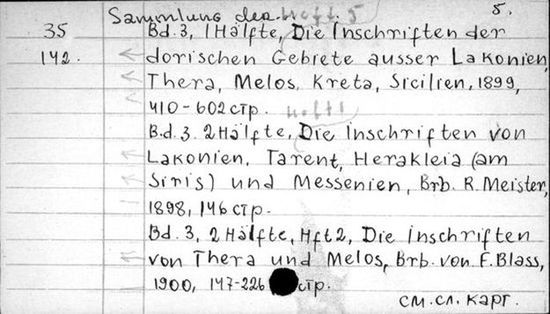 Sammlung der Heft. 5 5.
35 Bd. 3, 1 Hälfte, Die Inschriften der
142. dorischen Gebiete ausser Lakonien,
Thera, Melos, Kreta, Sicilien, 1899,
410-602 стр. Heft 1
Bd. 3. 2 Hälfte, Die Inschriften von
Lakonien, Tarent, Herakleia (am
Siris) und Messenien, Brb. R. Meister,
1898, 146 стр.
Bd. 3, 2 Hälfte, Hft 2, Die Inschriften
von Thera und Melos, Brb. von F. Blass,
1900, 147-226 стр.
см. сл. карт.